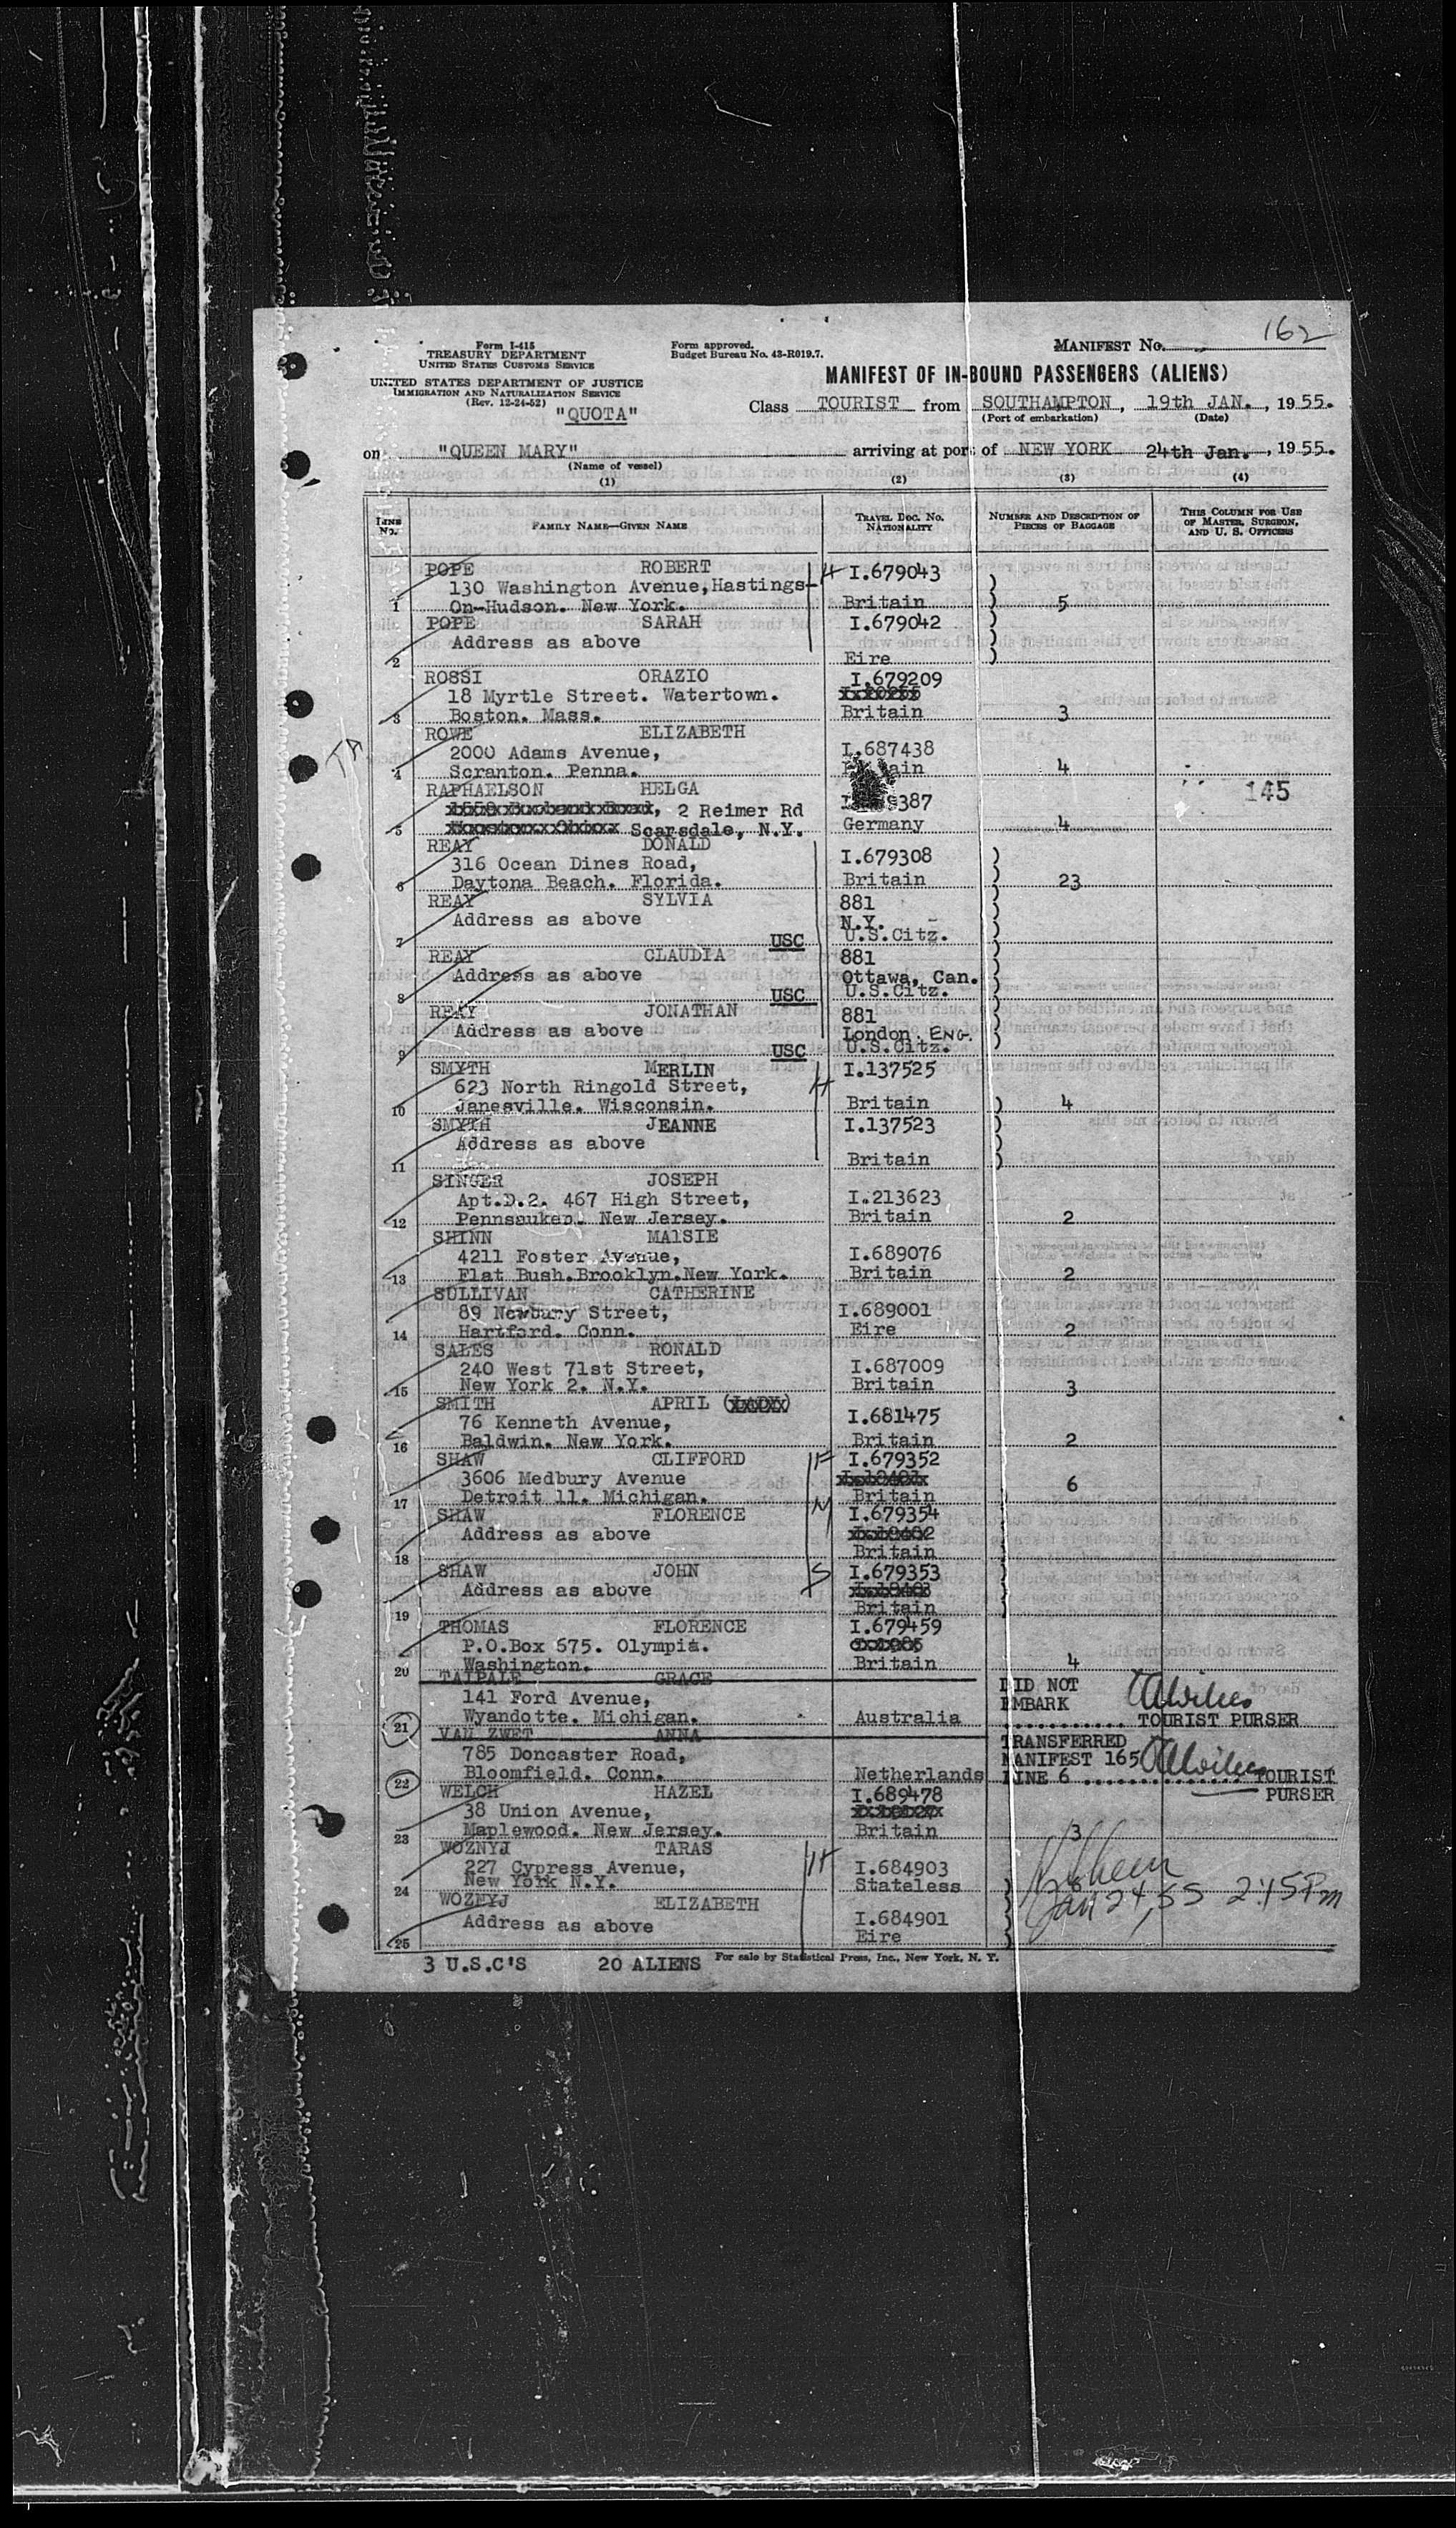 162
Form I-415
TREASURY DEPARTMENT
UNITED STATES CUSTOMS SERVICE
Form approved.
Budget Bureau No. 43-R019.7.
MANIFEST No.
UNITED STATES DEPARTMENT OF JUSTICE
IMMIGRATION AND NATURALIZATION SERVICE
(Rev. 12-24-52)
"QUOTA"
MANIFEST OF IN-BOUND PASSENGERS (ALIENS)
Class TOURIST from SOUTHAMPTON, 19th JAN., 1955.
(Port of embarkation) (Date)
on "QUEEN MARY" arriving at port of NEW YORK 24th Jan., 1955.
(Name of vessel)
(1) (2) (3) (4)
LINE No. FAMILY NAME—GIVEN NAME TRAVEL DOC. NO. NATIONALITY NUMBER AND DESCRIPTION OF PIECES OF BAGGAGE THIS COLUMN FOR USE OF MASTER, SURGEON, AND U. S. OFFICERS
POPE ROBERT H I.679043
130 Washington Avenue,Hastings-
1 On-Hudson. New York. Britain 5
POPE SARAH I.679042
Address as above
2 Eire
ROSSI ORAZIO I.679209
18 Myrtle Street. Watertown.
3 Boston. Mass. Britain 3
ROWE ELIZABETH
2000 Adams Avenue, I.687438
4 Scranton. Penna. 4
RAPHAELSON HELGA
2 Reimer Rd 387
5 Scarsdale, N.Y. Germany 4
145
REAY DONALD
316 Ocean Dines Road, I.679308
6 Daytona Beach. Florida. Britain 23
REAY SYLVIA 881
Address as above N.Y.
7 USC U.S.Citz.
REAY CLAUDIA 881
Address as above Ottawa, Can.
8 USC U.S.Citz.
REAY JONATHAN 881
Address as above London, ENG.
9 USC U.S.Citz.
SMYTH MERLIN I.137525
623 North Ringold Street, H
10 Janesville. Wisconsin. Britain 4
SMYTH JEANNE I.137523
Address as above
11 Britain
SINGER JOSEPH
Apt.D.2. 467 High Street, I.213623
12 Pennsauken. New Jersey. Britain 2
SHINN MAISIE
4211 Foster Avenue, I.689076
13 Flat Bush.Brooklyn.New York. Britain 2
SULLIVAN CATHERINE
89 Newbury Street, I.689001
14 Hartford. Conn. Eire 2
SALES RONALD
240 West 71st Street, I.687009
15 New York 2. N.Y. Britain 3
SMITH APRIL
76 Kenneth Avenue, I.681475
16 Baldwin. New York. Britain 2
SHAW CLIFFORD F I.679352
3606 Medbury Avenue
17 Detroit 11. Michigan. Britain 6
SHAW FLORENCE M I.679354
Address as above
18 Britain
SHAW JOHN S I.679353
Address as above
19 Britain
THOMAS FLORENCE I.679459
P.O.Box 675. Olympia.
20 Washington. Britain 4
TAIPALE GRACE DID NOT
141 Ford Avenue, EMBARK
21 Wyandotte. Michigan. Australia TOURIST PURSER
VAN ZWET ANNA TRANSFERRED
785 Doncaster Road, MANIFEST 165
22 Bloomfield. Conn. Netherlands LINE 6 TOURIST
PURSER
WELCH HAZEL I.689478
38 Union Avenue,
23 Maplewood. New Jersey. Britain 3
WOZNYJ TARAS H
227 Cypress Avenue, I.684903
24 New York N.Y. Stateless
Jan 24, 55 2:15 Pm
WOZNYJ ELIZABETH
Address as above I.684901
25 Eire
3 U.S.C'S 20 ALIENS For sale by Statistical Press, Inc., New York, N. Y.